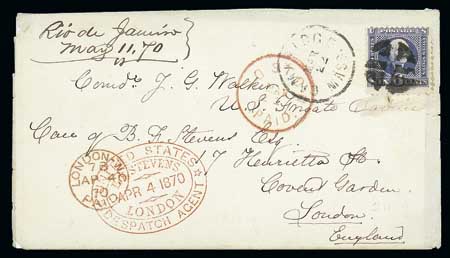 Rio de Janeiro
May 11, 70
Comdr. J. G. Walker
U. S. Frigate
Care of B. F. Stevens Esq.
7 Henrietta St.
Covent Garden.
London.
England
MASS.
PAID
LONDON. W.C
AP 4
70
PAID
UNITED STATES
STEVENS
APR 4 1870
LONDON
DESPATCH AGENT